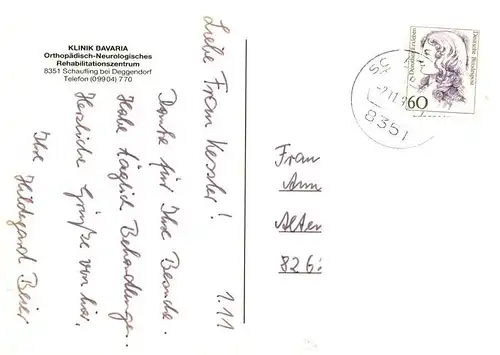 KLINIK BAVARIA
Orthopädisch-Neurologisches
Rehabilitationszentrum
8351 Schaufling bei Deggendorf
Telefon (09904) 770
1.11
Liebe Frau Kessler!
Danke für Ihre Besuche.
Habe täglich Behandlungen.
Herzliche Grüße von hier,
Ihre Hildegard Beier
Deutsche Bundespost
60
8351
Frau
Ann
Alter
826